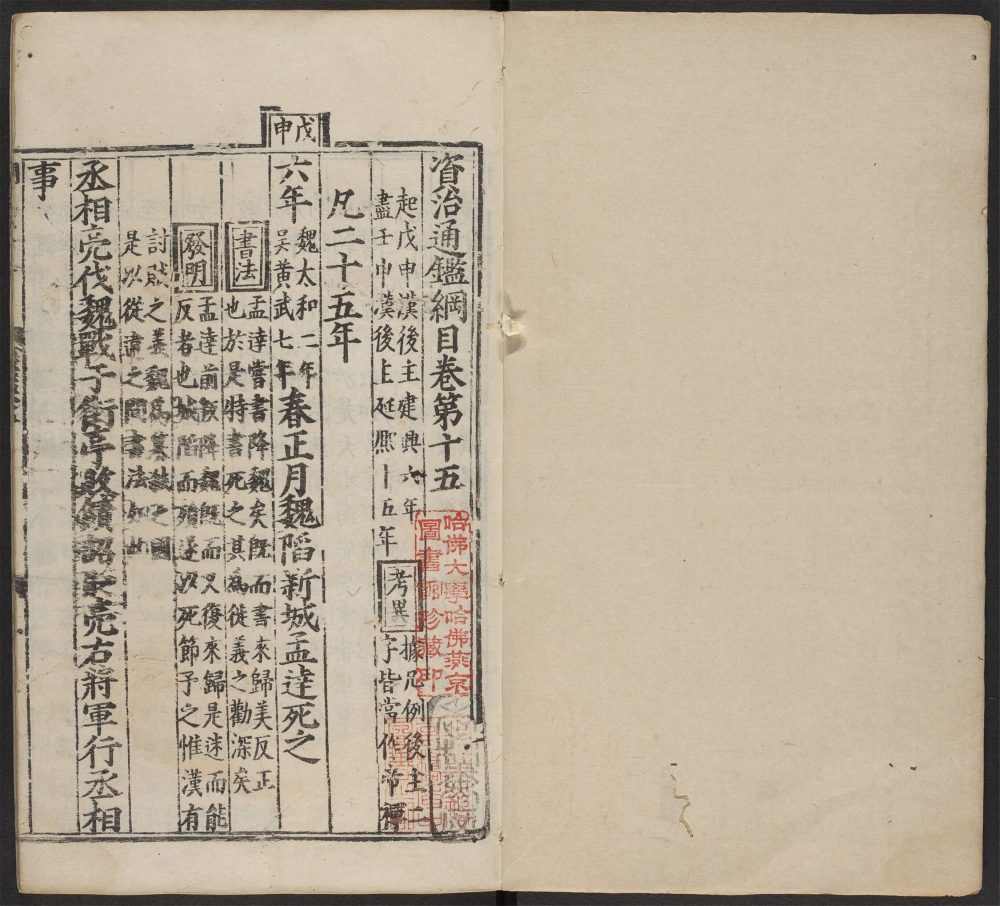 資治通鑑綱目卷第十五
起戊申漢後主建興六年
盡壬申漢後主延熙十五年
考異
據凡例後主二
字皆當作帝禪
凡二十五年
戊申
六年
魏太和二年
吳黃武七年
春正月魏陷新城孟達死之
書法
孟達嘗書降魏矣既而書來歸美反正
也於是特書死之其為徙義之勸深矣
發明
孟達前叛降魏既而又復來歸是迷而能
反者也城陷而殞遂以死節予之惟漢有
討賊之義魏為篡賊之國
是以從達之間書法如此
丞相亮伐魏戰于街亭敗績詔貶亮右將軍行丞相
事
哈佛大學哈佛燕京
圖書館珍藏印